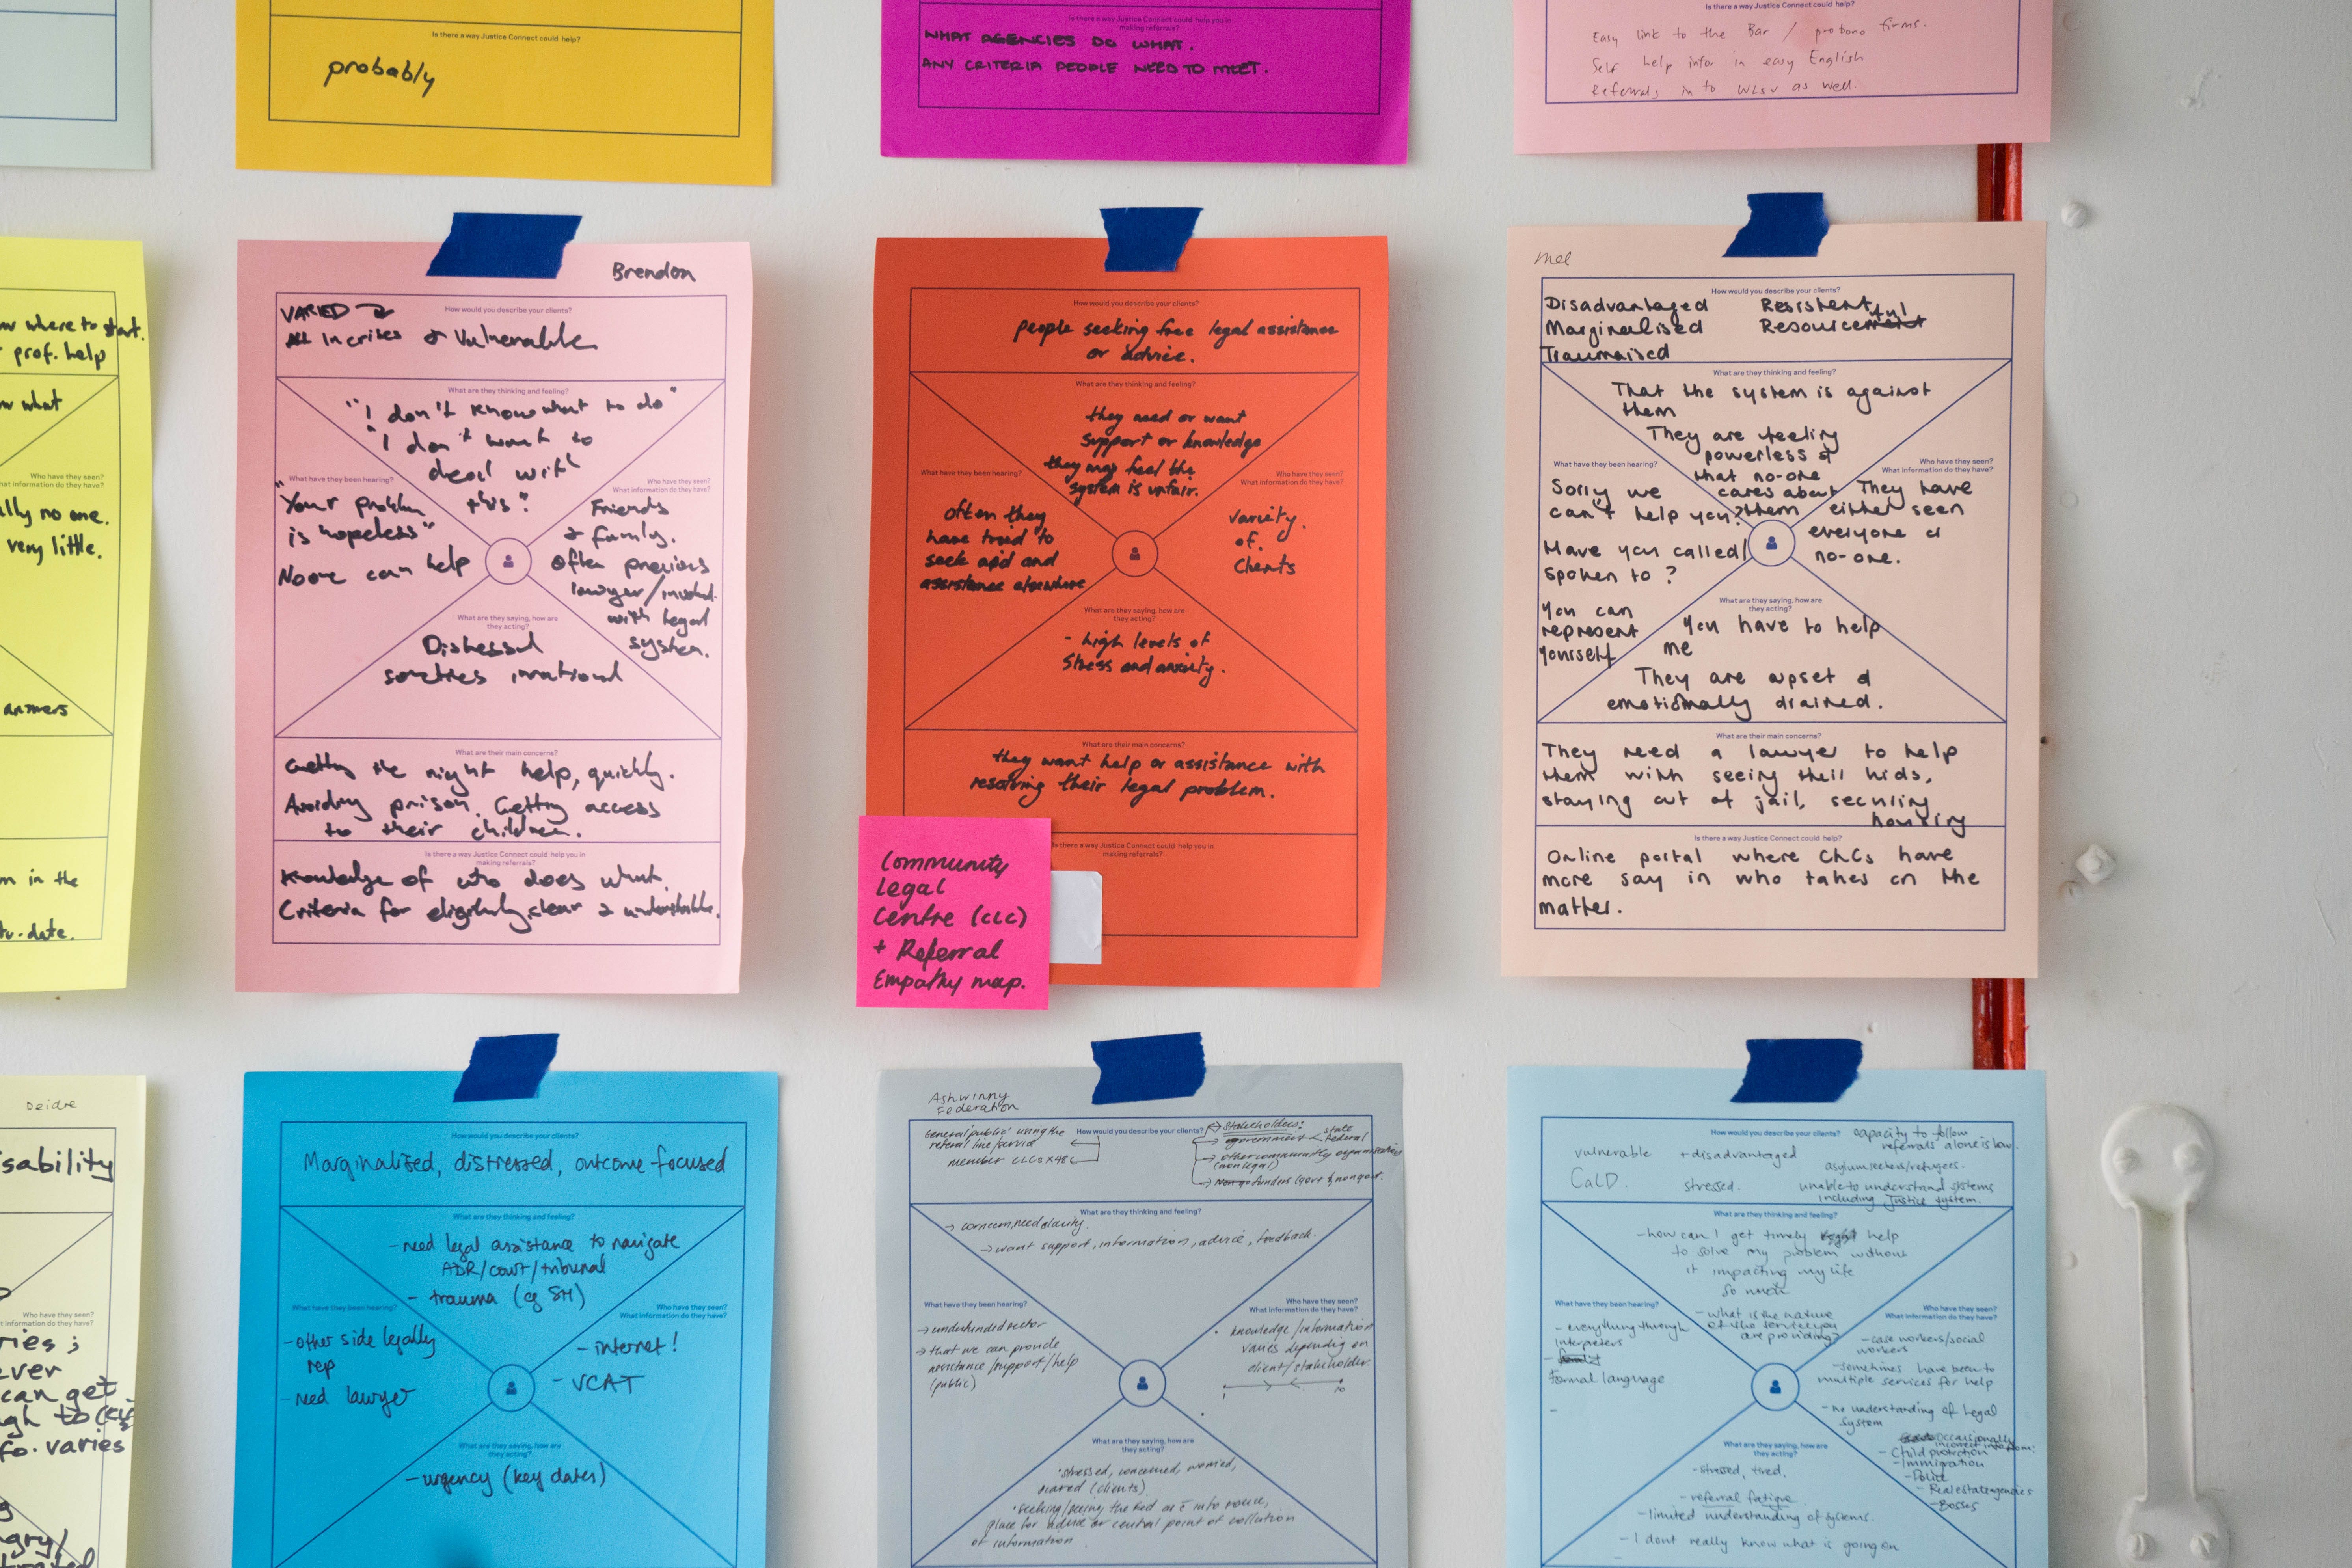 Is there a way Justice Connect could help?
probably
Is there a way Justice Connect could help you in
making referrals?
WHAT AGENCIES DO WHAT.
ANY CRITERIA PEOPLE NEED TO MEET.
Is there a way Justice Connect could help?
Easy link to the Bar / probono firms.
Self help infor in easy English
Referrals in to WLSV as well.
where to start.
prof. help
what
Who have they seen?
What information do they have?
no one.
very little.
answers
in the
to-date.
Brendon
How would you describe your clients?
VARIED
All In crises & Vulnerable
What are they thinking and feeling?
"I don't know what to do"
"I don't want to
deal with
this."
What have they been hearing?
"Your problem
is hopeless"
Noone can help
Who have they seen?
What information do they have?
Friends
& family.
Often previous
lawyer/involved
with legal
system.
What are they saying, how are
they acting?
Distressed
sometimes irrational
What are their main concerns?
Getting the right help, quickly.
Avoiding prison. Getting access
to their children.
Is there a way Justice Connect could help you in
making referrals?
Knowledge of who does what.
Criteria for eligibility, clear &
How would you describe your clients?
People seeking free legal assistance
or advice.
What are they thinking and feeling?
they need or want
support or knowledge
they may feel the
system is unfair.
What have they been hearing?
often they
have tried to
seek aid and
assistance elsewhere
Who have they seen?
What information do they have?
variety
of
clients
What are they saying, how are
they acting?
- high levels of
stress and anxiety.
What are their main concerns?
they want help or assistance with
resolving their legal problem.
Is there a way Justice Connect could help you in
making referrals?
Community
Legal
Centre (CLC)
+ Referral
Empathy map.
Mel
How would you describe your clients?
Disadvantaged Resistent
Marginalised Resourceful
Traumaised
What are they thinking and feeling?
That the system is against
them
They are feeling
powerless &
that no-one
cares about
them
What have they been hearing?
Sorry we
can't help you?
Have you called/
spoken to?
You can
represent
yourself
Who have they seen?
What information do they have?
They have
either seen
everyone or
no-one.
What are they saying, how are
they acting?
You have to help
me
They are upset &
emotionally drained.
What are their main concerns?
They need a lawyer to help
them with seeing their kids,
staying out of jail, securing
housing
Is there a way Justice Connect could help?
Online portal where CLCs have
more say in who takes on the
matter.
Deidre
sability
Who have they seen?
What information do they have?
ries;
ever
can get
to
fo. varies
How would you describe your clients?
Marginalised, distressed, outcome focused
What are they thinking and feeling?
- need legal assistance to navigate
ADR/court/tribunal
- trauma (eg SH)
What have they been hearing?
- other side legally
rep
- need lawyer
Who have they seen?
What information do they have?
- internet!
- VCAT
What are they saying, how are
they acting?
- urgency (key dates)
Ashwinny
Federation
How would you describe your clients?
General public using the
referral line/service
member CLCs x48
Stakeholders:
government
state
federal
other community organisations
(non legal)
funders (govt & nongovt.
What are they thinking and feeling?
→ concern, need clarity.
→ want support, information, advice, feedback.
What have they been hearing?
→ underfunded sector
→ that we can provide
assistance/support/help
(public)
Who have they seen?
What information do they have?
knowledge/information
varies depending on
client/stakeholder.
1 10
What are they saying, how are
they acting?
• stressed, concerned, worried,
scared (clients).
• seeking/seeing the Fed as
place for advice or central point of collation
of information
How would you describe your clients?
capacity to follow
referrals alone is low.
vulnerable + disadvantaged
asylum seekers/refugees.
CaLD. stressed.
unable to understand systems
including Justice system.
What are they thinking and feeling?
- how can I get timely help
to solve my problem without
it impacting my life
so much
- what is the nature
of the service you
are providing?
What have they been hearing?
- everything through
interpreters
Formal language
Who have they seen?
What information do they have?
- case workers/social
workers
- sometimes have been to
multiple services for help
- no understanding of legal
system
occasionally
incorrect info from:
- Child protection
- Immigration
- Police
- Real estate agencies
- Bosses
What are they saying, how are
they acting?
- stressed, tired.
- referral fatigue.
- limited understanding of systems.
- I dont really know what is going on